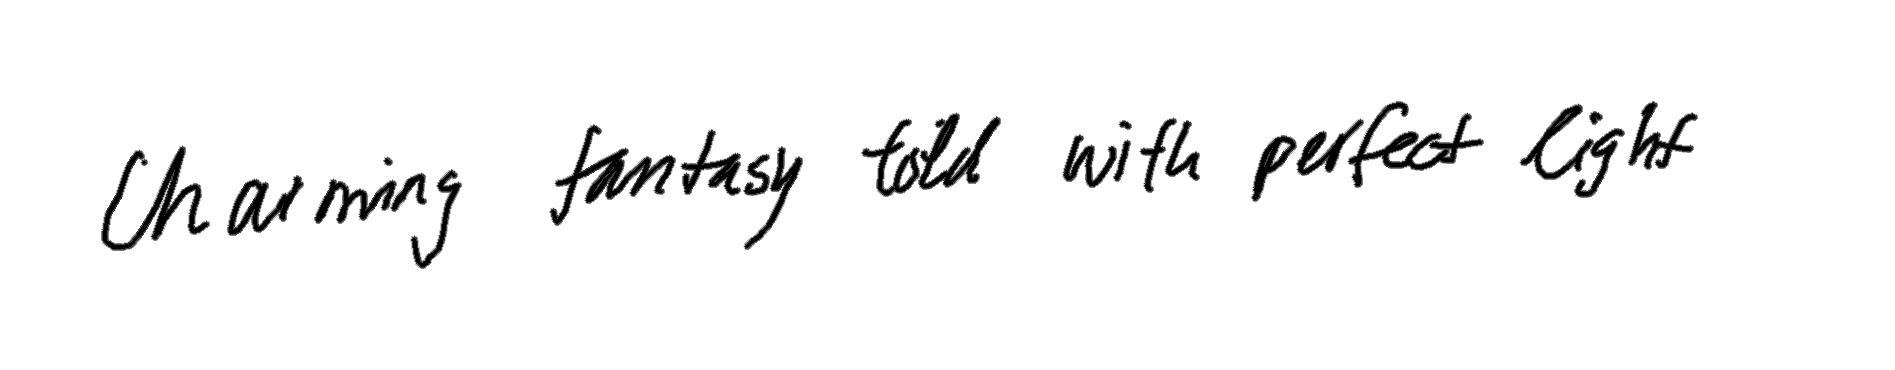 Charming fantasy told with perfect light